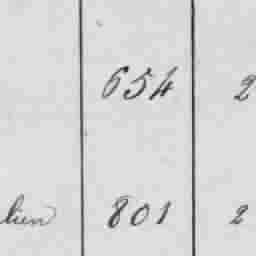 654 2
lien 801 2